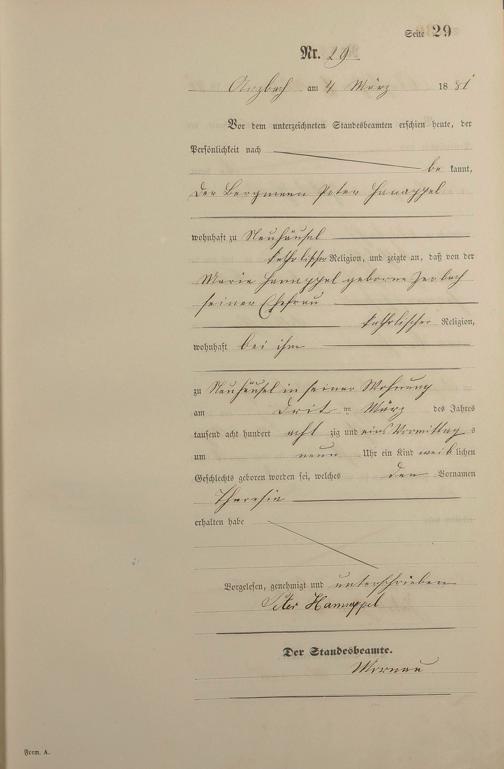 Seite 29
Nr. 29
Arzbach am 4 März 1881
Vor dem unterzeichneten Standesbeamten erschien heute, der
Persönlichkeit nach
be kannt,
der Bergmann Peter Hannappel
wohnhaft zu Neuhäusel
katholischer Religion, und zeigte an, daß von der
Marie Hannappel geborne
seiner Ehefrau
katholischer Religion,
wohnhaft bei ihm
zu Neuhäusel in seiner Wohnung
am drit en März des Jahres
tausend acht hundert acht zig und eins Vormittag s
um neun Uhr ein Kind weib lichen
Geschlechts geboren worden sei, welches den Vornamen
Theresia
erhalten habe
Vorgelesen, genehmigt und unterschrieben
Peter Hannappel
Der Standesbeamte.
Form. A.